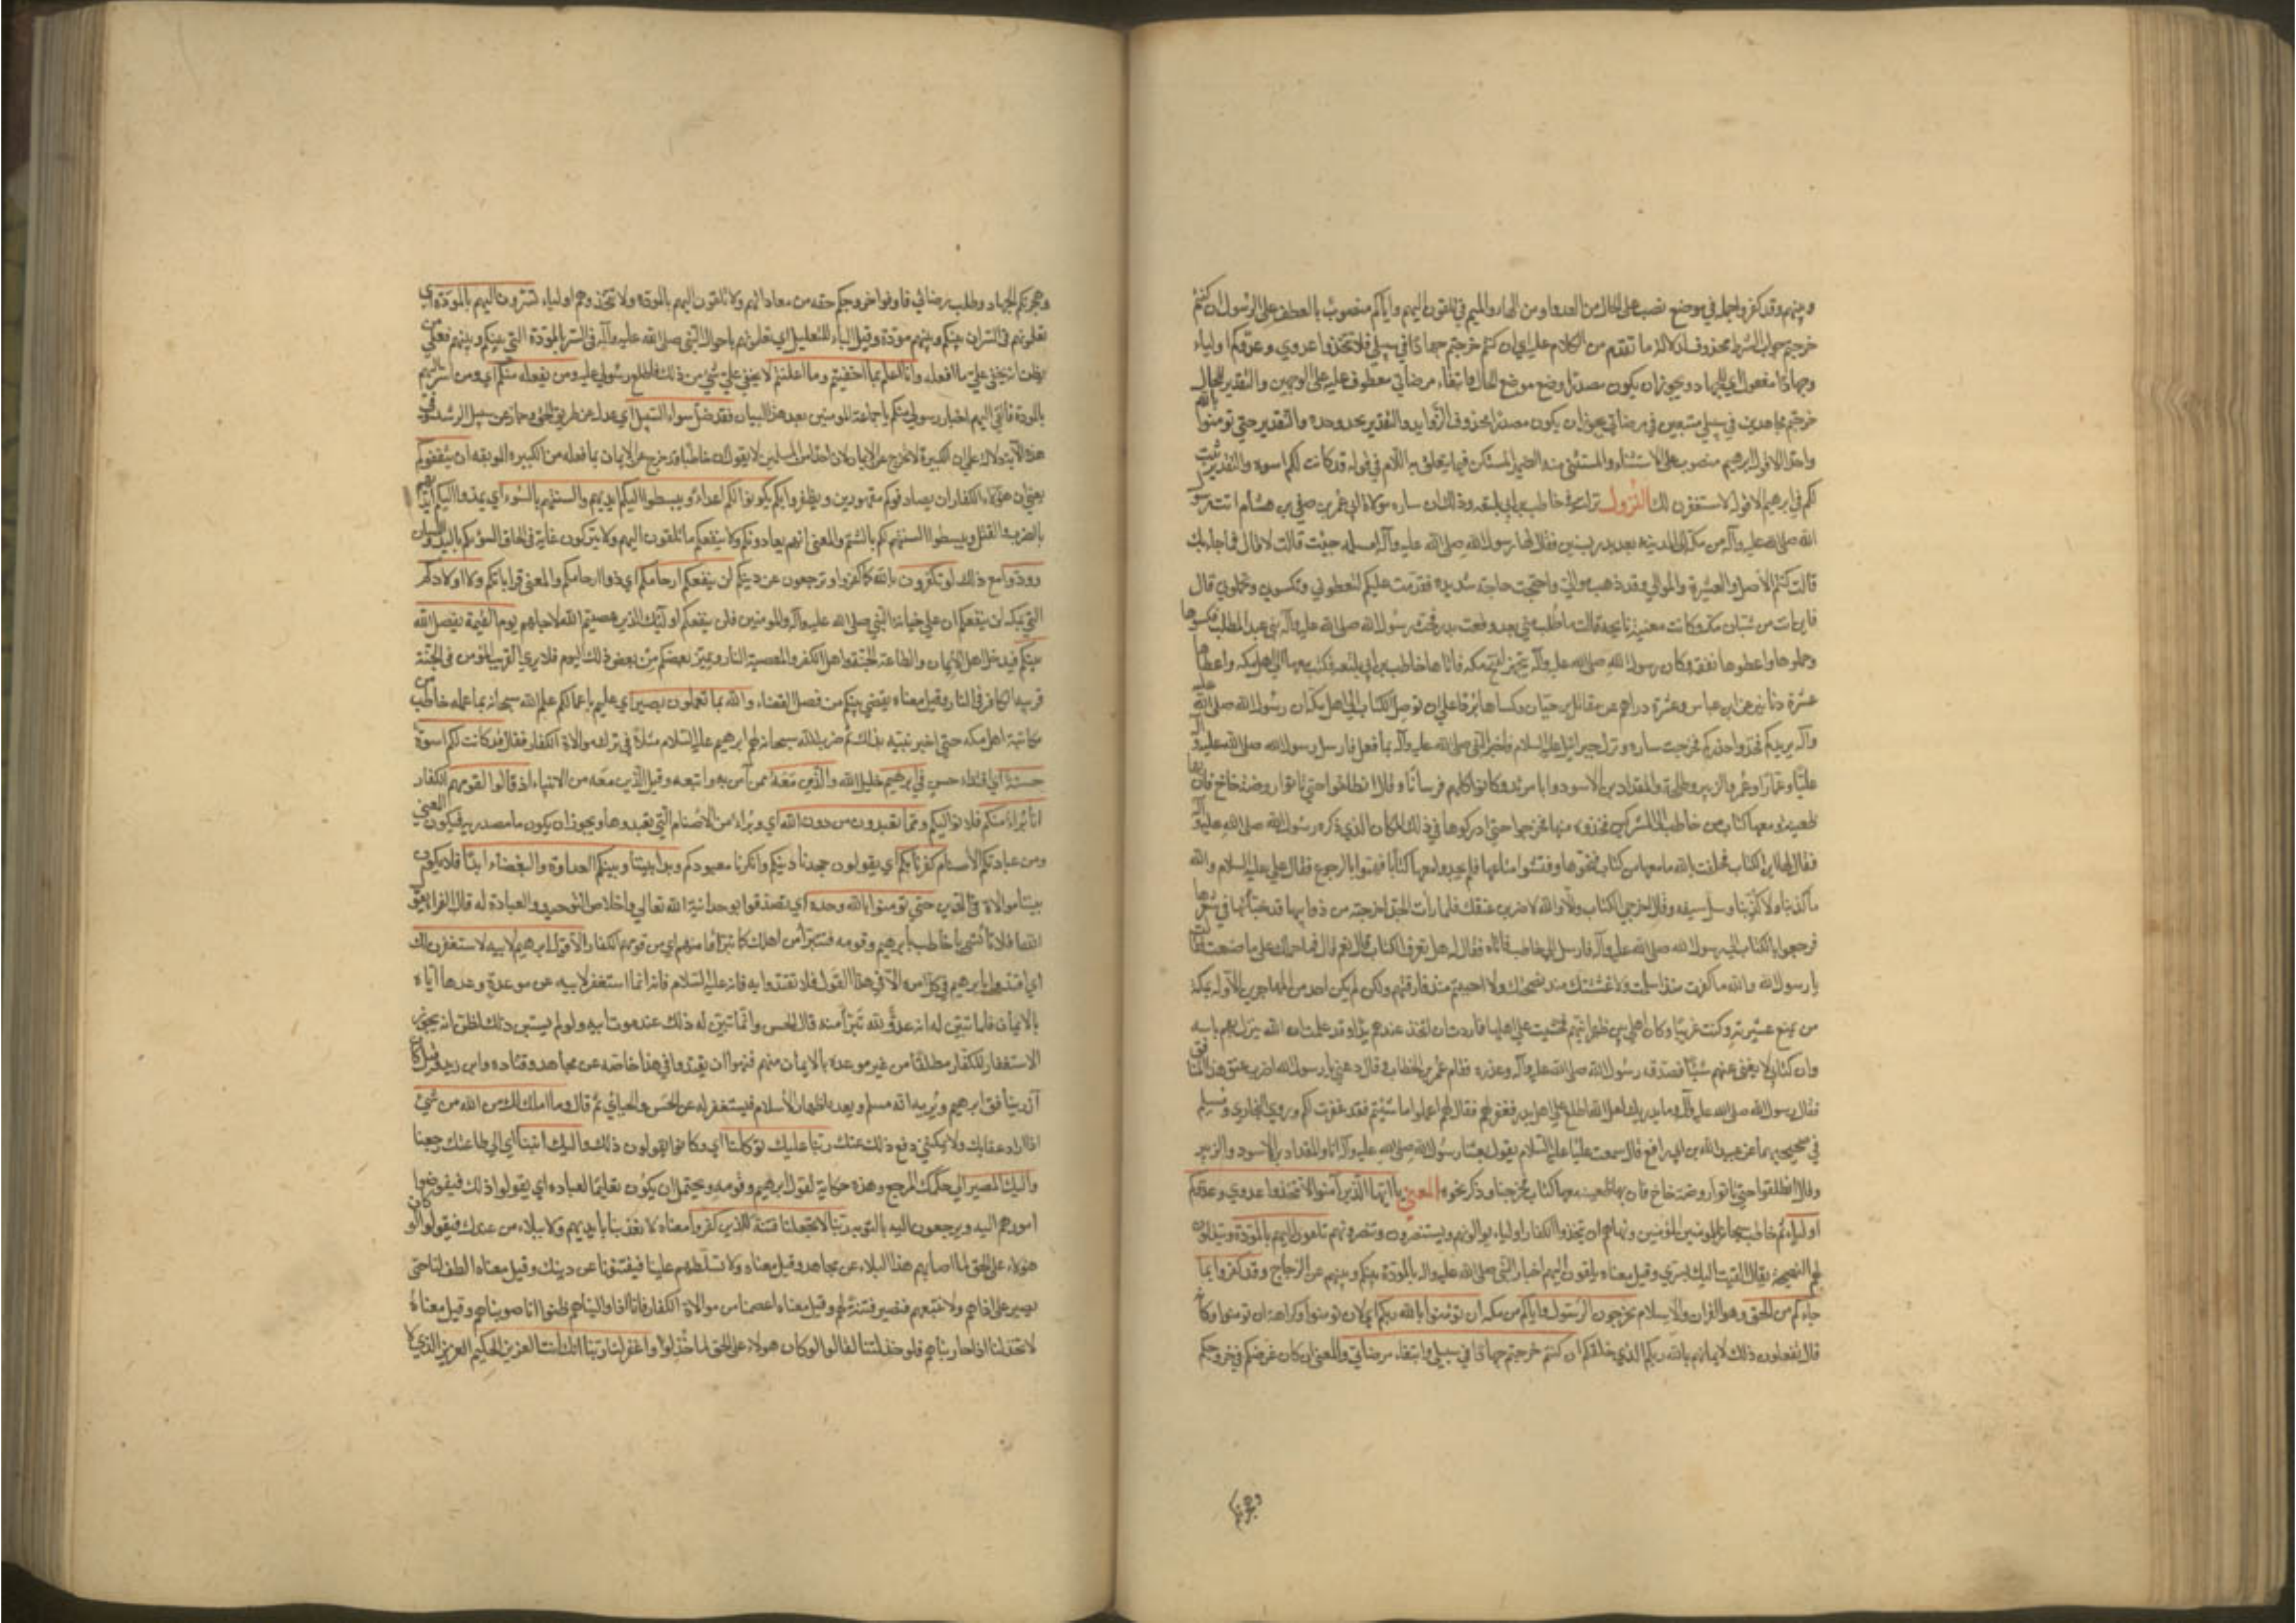 وبينهم وقد كفروا جملة في موضع نصب على الحال من العدو او من الهاء والميم في تلقون اليهم واياكم منصوب بالعطف على الرسول ان كنتم
خرجتم جواب الشرط محذوف لدلالة ما تقدم من الكلام عليه اي ان كنتم خرجتم جهادا في سبيلي فلا تتخذوا عدوي وعدوكم اولياء
وجهادا مفعول له اي للجهاد ويجوز ان يكون مصدرا وضع موضع الحال وابتغاء مرضاتي معطوف عليه على الوجهين والتقدير للحال
خرجتم مجاهدين في سبيلي مبتغين في مرضاتي يجوز ان يكون مصدرا محذوف الزوايد والتقدير يحد وحده والتقدير حتى تومنوا بالله
واحدا الا قول ابرهيم منصوب على الاستثناء والمستثنى منه الضمير المستكن فيما يتعلق به اللام في قوله قد كانت لكم اسوة والتقدير ثبت
لكم في ابرهيم الا قوله لاستغفرن لك النزول نزلت في حاطب بن ابي بلتعه وذلك ان ساره مولاة ابي عمرو بن صيفي بن هشام اتت رسول
الله صلى الله عليه وآله من مكة الى المدينة بعد بدر بسنين فقال لها رسول الله صلى الله عليه وآله امسلمة جئت قالت لا قال فما جاء بك
قالت كنتم الاصل والعشيرة والموالي وقد ذهب موالي واحتجت حاجة شديده فقدمت عليكم لتعطوني وتكسوني وتحملوني قال
فاين انت من شبان مكة وكانت مغنية نايحة قالت ما طلب مني بعد وقعت بدر فحث رسول الله صلى الله عليه وآله بني عبد المطلب فكسوها
وحملوها واعطوها نفقة وكان رسول الله صلى الله عليه وآله يتجهز لفتح مكه فاتاها حاطب بن ابي بلتعه فكتب معها الى اهل مكه واعطاها
عشرة دنانير عن ابن عباس وعشرة دراهم عن مقاتل بن حيان وكساها بردا على ان توصل الكتاب الى اهل مكة ان رسول الله صلى الله عليه
وآله يريدكم فخذوا حذركم فخرجت ساره ونزل جبرائيل عليه السلام فاخبر النبي صلى الله عليه وآله بما فعل فارسل رسول الله صلى الله عليه وآله
عليا وعمارا وعمر والزبير وطلحة والمقداد بن الاسود وابا مرثد وكانوا كلهم فرسانا وقال انطلقوا حتى تاتوا روضة خاخ فان بها
ظعينة معها كتاب من حاطب الى المشركين فخذوه منها فخرجوا حتى ادركوها في ذلك المكان الذي ذكره رسول الله صلى الله عليه وآله
فقالوا لها اين الكتاب فحلفت بالله ما معها من كتاب فنحوها وفتشوا متاعها فلم يجدوا معها كتابا فهموا بالرجوع فقال علي عليه السلام والله
ما كذبنا ولا كذبنا وسل سيفه وقال اخرجي الكتاب والا والله لاضربن عنقك فلما رات الجد اخرجته من ذوابتها قد خباتها في شعرها
فرجعوا بالكتاب الى رسول الله صلى الله عليه وآله فارسل الى حاطب فاتاه فقال له هل تعرف الكتاب قال نعم قال فما حملك على ما صنعت فقال
يا رسول الله والله ما كفرت منذ اسلمت ولا غششتك منذ نصحتك ولا احببتهم منذ فارقتهم ولكن لم يكن احد من المهاجرين الا وله بمكة
من يمنع عشيرته وكنت غريبا وكان اهلي بين ظهرانيهم فخشيت على اهلي فاردت ان اتخذ عندهم يدا وقد علمت ان الله ينزل بهم باسه
وان كتابي لا يغني عنهم شيئا فصدقه رسول الله صلى الله عليه وآله وعذره فقام عمر بن الخطاب وقال دعني يا رسول الله اضرب عنق هذا المنافق
فقال رسول الله صلى الله عليه وآله وما يدريك لعل الله اطلع على اهل بدر فغفر لهم فقال لهم اعملوا ما شئتم فقد غفرت لكم وروى البخاري ومسلم
في صحيحيهما عن عبيد الله بن ابي رافع قال سمعت عليا عليه السلام يقول بعثنا رسول الله صلى الله عليه وآله انا والمقداد بن الاسود والزبير
وقال انطلقوا حتى تاتوا روضة خاخ فان بها ظعينة معها كتاب فخرجنا وذكر نحوه المعنى يا ايها الذين آمنوا لا تتخذوا عدوي وعدوكم
اولياء ثم خاطب سبحانه المومنين ونهاهم ان يتخذوا الكفار اولياء يوالونهم ويستنصرون بهم وينصرونهم تلقون اليهم بالمودة وتبذلون
لهم النصيحة يقال القيت اليك بسري وقيل معناه يلقون اليهم اخبار النبي صلى الله عليه وآله بالمودة بينكم وبينهم عن الزجاج وقد كفروا بما
جاءكم من الحق وهو القران والاسلام يخرجون الرسول واياكم من مكه ان تومنوا بالله ربكم اي لان تومنوا وكراهة ان تومنوا وكانه
قال يفعلون ذلك لايمانكم بالله ربكم الذي خلقكم ان كنتم خرجتم جهادا في سبيلي وابتغاء مرضاتي والمعنى ان كان غرضكم في خروجكم
وهجرتكم
وهجرتكم الجهاد وطلب رضائي فاوفوا خروجكم حقه من معاداتهم ولا تلقون اليهم بالمودة ولا تتخذوهم اولياء تسرون اليهم بالمودة اي
تعلمونهم في السر ان بينكم وبينهم مودة وقيل الباء للتعليل اي تعلمونهم باحوال النبي صلى الله عليه وآله في السر بالمودة التي بينكم وبينهم فعل من
يظن انه يخفى علي ما افعله وانا اعلم بما اخفيتم وما اعلنتم لا يخفى علي شي من ذلك فاطلع رسولي عليه ومن يفعله منكم اي ومن اسر اليهم
بالمودة فالقى اليهم اخبار رسولي منكم يا جماعة المومنين بعد هذا البيان فقد ضل سواء السبيل اي عدل عن طريق الحق وحاد عن سبيل الرشد وفي
هذه الآية دلالة على ان الكبيرة لا تخرج عن الايمان لان احدا من المسلمين لا يقول ان حاطبا قد خرج عن الايمان بما فعله من الكبيرة الموبقه ان يثقفوكم
يعني ان هؤلاء الكفار ان يصادفوكم مقهورين ويظفروا بكم يكونوا لكم اعداء ويبسطوا اليكم ايديهم والسنتهم بالسوء اي يمدوا اليكم ايديهم
بالضرب والقتل ويبسطوا السنتهم لكم بالشتم والمعنى انهم يعادونكم ولا ينفعكم ما تلقون اليهم ولا يتركون غاية في الحاق السوء بكم باليد واللسان
وودوا مع ذلك لو تكفرون بالله كما كفروا وترجعون عن دينكم لن ينفعكم ارحامكم اي ذوا ارحامكم والمعنى قراباتكم ولا اولادكم
التي بمكه لن ينفعكم ان على خيانة النبي صلى الله عليه وآله والمومنين فلن ينفعكم اولئك الذين عصيتم الله لاجلهم يوم القيمة يفصل الله
بينكم فيدخل اهل الايمان والطاعة الجنة واهل الكفر والمعصية النار ويميز بعضكم من بعض ذلك اليوم فلا يرى القريب المؤمن في الجنة
قريبه الكافر في النار وقيل معناه يقضي بينكم من فصل القضاء والله بما تعملون بصير اي عليم باعمالكم علم الله سبحانه بما عمله حاطب من
مكاتبة اهل مكه حتى اخبر نبيه بذلك ثم ضرب الله سبحانه لهم ابرهيم عليه السلام مثلا في ترك موالاة الكفار فقال قد كانت لكم اسوة
حسنة اي اقتداء حسن في ابرهيم خليل الله والذين معه ممن آمن به واتبعه وقيل الذين معه من الانبياء اذ قالوا لقومهم الكفار
انا براء منكم فلا نواليكم ومما تعبدون من دون الله اي وبراء من الاصنام التي تعبدوها ويجوز ان يكون ما مصدرية فيكون المعنى
ومن عبادتكم الاصنام كفرنا بكم اي يقولون جحدنا دينكم وانكرنا معبودكم وبدا بيننا وبينكم العداوة والبغضاء ابدا فلا يكون
بيننا موالاة في الدين حتى تومنوا بالله وحده اي تصدقوا بوحدانية الله تعالى واخلاص التوحيد والعبادة له قال الفراء يقول
الله افلا تاتسى يا حاطب بابرهيم وقومه فتبرأ من اهلك كما تبرؤا منهم اي من قومهم الكفار الا قول ابرهيم لابيه لاستغفرن لك
اي اقتدوا بابرهيم في كل امره الا في هذا القول فلا تقتدوا به فانه عليه السلام فانه انما استغفر لابيه عن موعدة وعدها اياه
بالايمان فلما تبين له انه عدو لله تبرأ منه قال الحسن وانما تبين له ذلك عند موت ابيه ولو لم يستبن ذلك لظن انه يجوز
الاستغفار للكفار مطلقا من غير موعدة بالايمان منهم فنهوا ان يقتدوا في هذا خاصة عن مجاهد وقتاده وابن زيد وقيل كان
آزر ينافق ابرهيم ويريه انه مسلم ويعده اظهار الاسلام فيستغفر له عن الحسن والجبائي ثم قال وما املك لك من الله من شي
اذا اراد عقابك ولا يمكنني دفع ذلك عنك ربنا عليك توكلنا اي وكانوا يقولون ذلك واليك انبنا اي الى طاعتك رجعنا
واليك المصير الى حكمك المرجع وهذه حكاية لقول ابرهيم وقومه ويحتمل ان يكون تعليما لعباده اي يقولوا ذلك فيفوضوا
امورهم اليه ويرجعون اليه بالتوبه ربنا لا تجعلنا فتنة للذين كفروا معناه لا تعذبنا بايديهم ولا ببلاء من عندك فيقولوا لو كان
هؤلاء على الحق لما اصابهم هذا البلاء عن مجاهد وقيل معناه ولا تسلطهم علينا فيفتنونا عن دينك وقيل معناه الطف لنا حتى
نصبر على اذاهم ولا نتبعهم فنصير فتنة لهم وقيل معناه اعصمنا من موالاة الكفار فانا اذا واليناهم ظنوا انا صوبناهم وقيل معناه
لا تخذلنا اذا حاربناهم فلو خذلتنا لقالوا لو كان هؤلاء على الحق لما خذلوا واغفر لنا ربنا انك انت العزيز الحكيم العزيز الذي لا